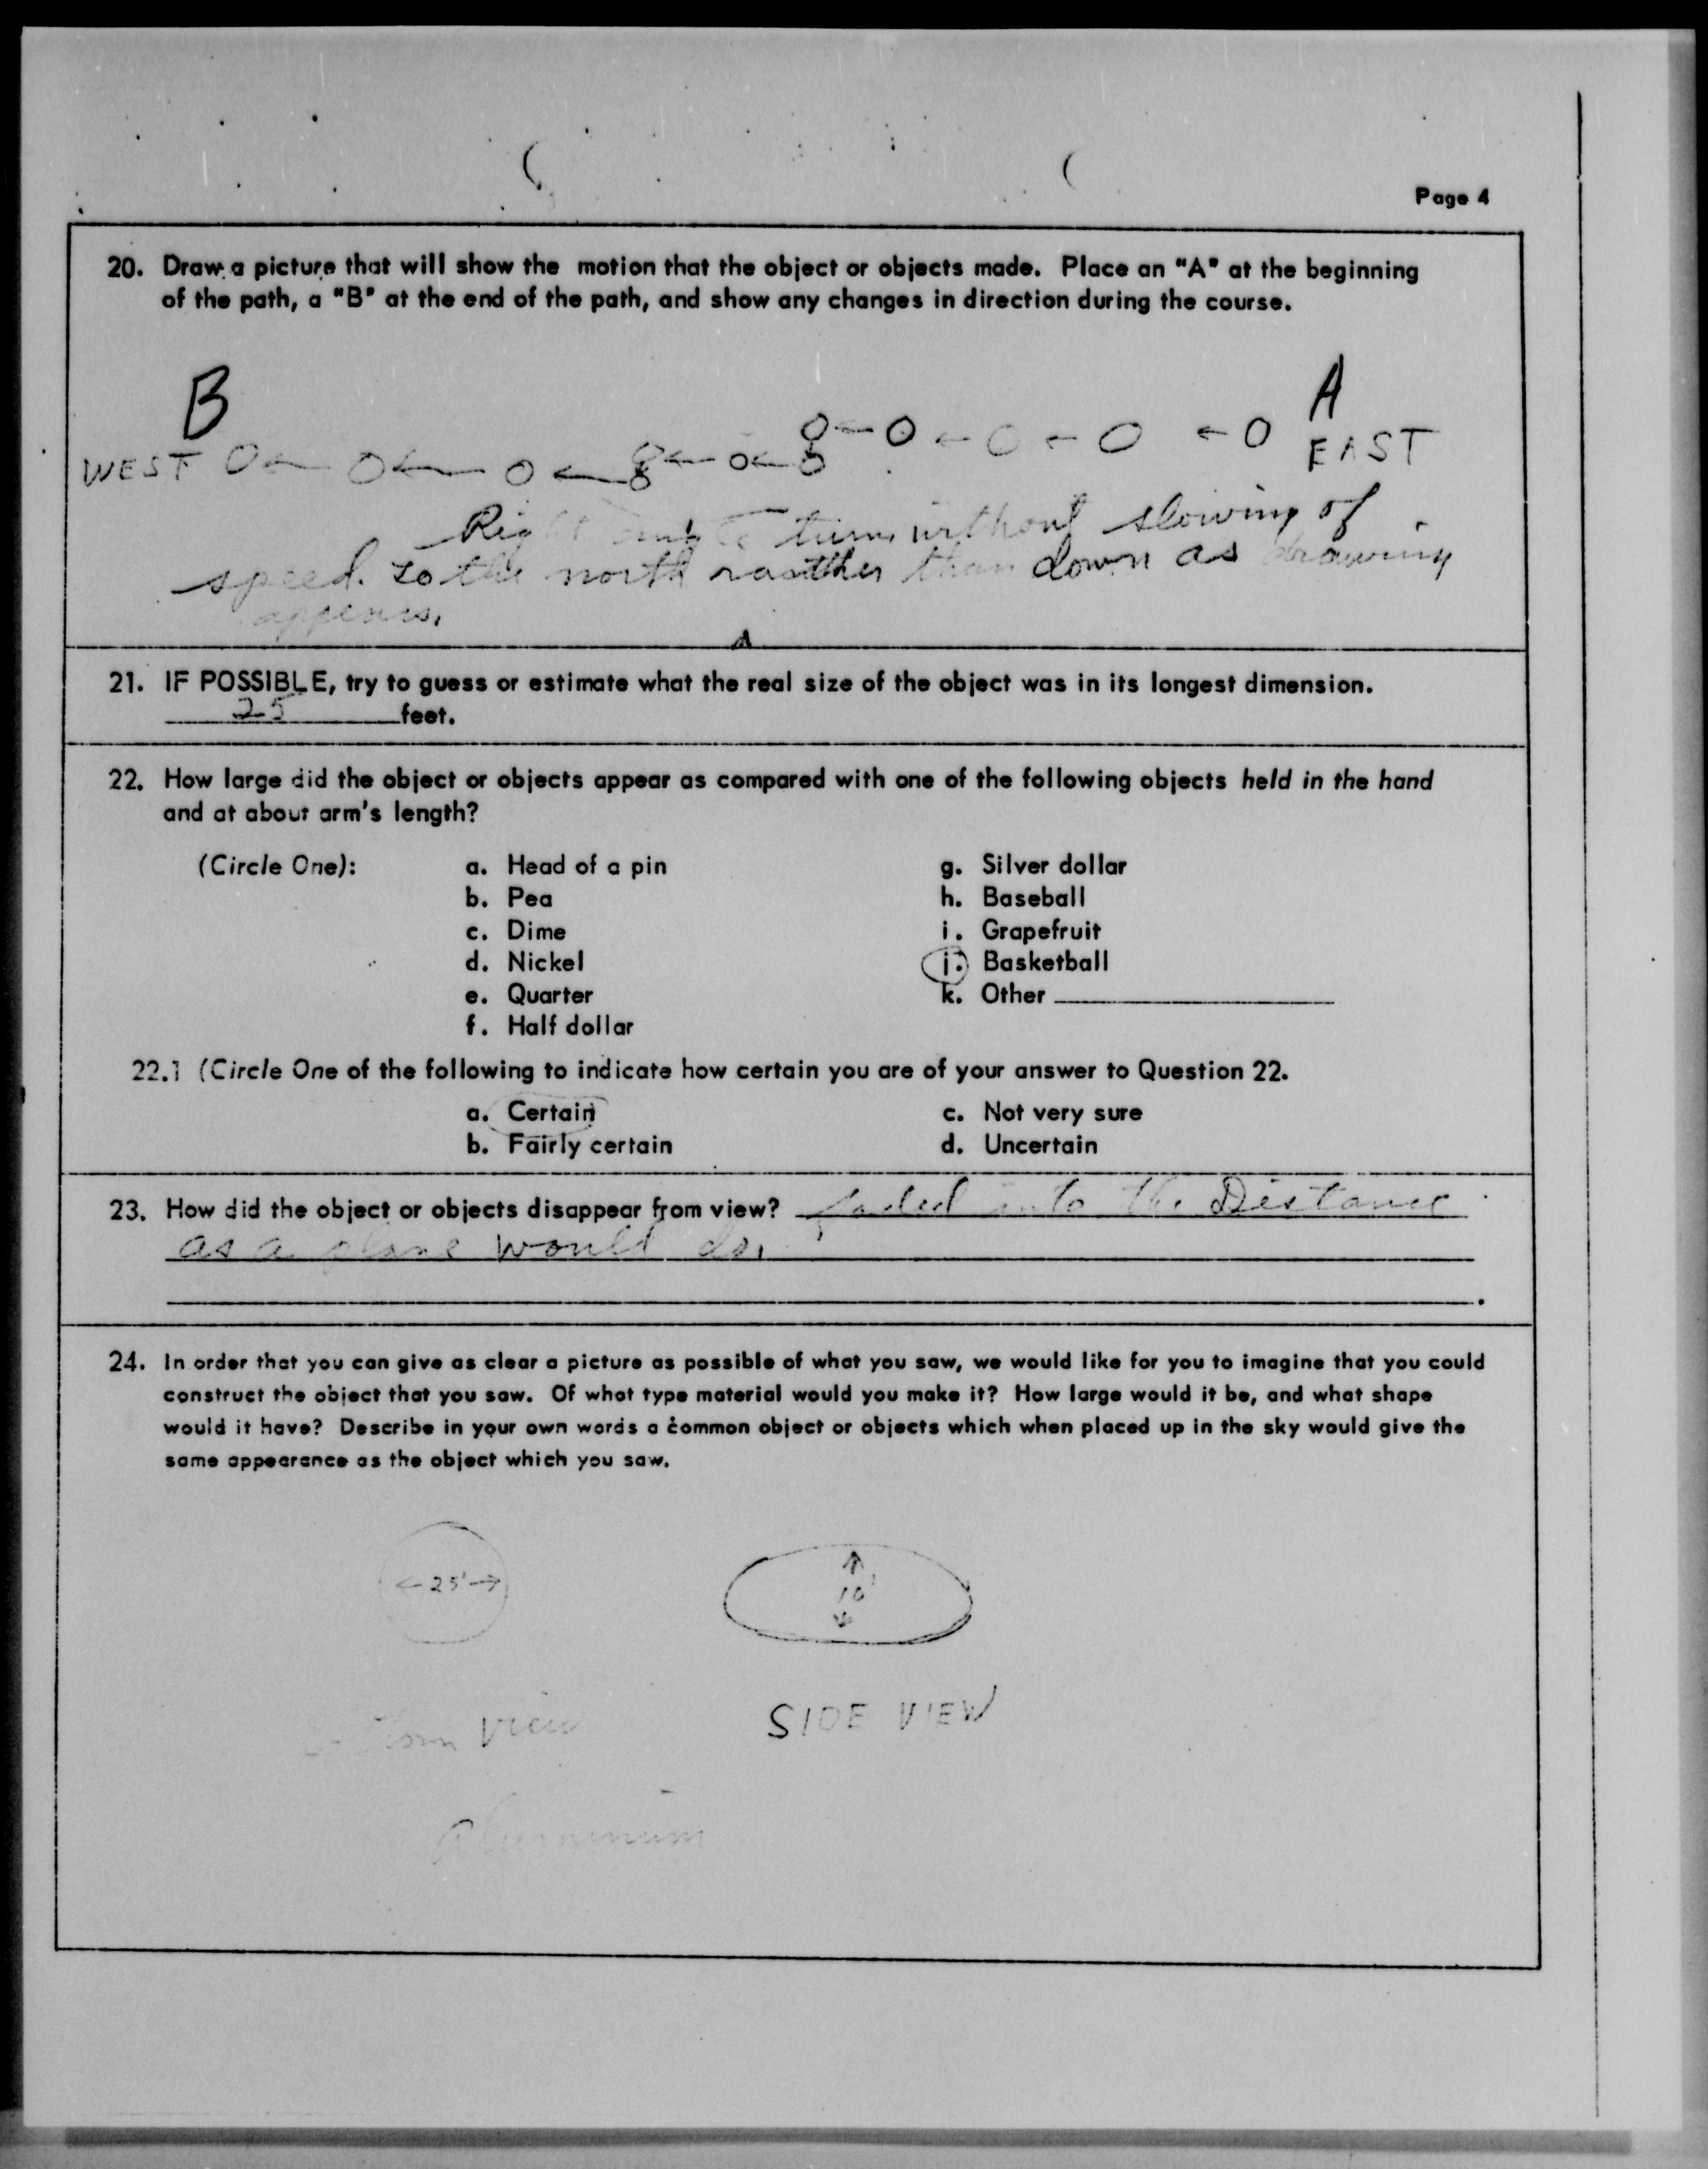 Page 4
20. Draw a picture that will show the motion that the object or objects made. Place an "A" at the beginning
of the path, a "B" at the end of the path, and show any changes in direction during the course.
B
A
WEST
EAST
Right angle turns without slowing of
speed. to the north rasther than down as drawing
appears.
21. IF POSSIBLE, try to guess or estimate what the real size of the object was in its longest dimension.
25 feet.
22. How large did the object or objects appear as compared with one of the following objects held in the hand
and at about arm's length?
(Circle One):
a. Head of a pin
b. Pea
c. Dime
d. Nickel
e. Quarter
f. Half dollar
g. Silver dollar
h. Baseball
i. Grapefruit
j. Basketball
k. Other
22.1 (Circle One of the following to indicate how certain you are of your answer to Question 22.
a. Certain
b. Fairly certain
c. Not very sure
d. Uncertain
23. How did the object or objects disappear from view? faded into the Distance
as a plane would do.
24. In order that you can give as clear a picture as possible of what you saw, we would like for you to imagine that you could
construct the object that you saw. Of what type material would you make it? How large would it be, and what shape
would it have? Describe in your own words a common object or objects which when placed up in the sky would give the
same appearance as the object which you saw.
25'
10'
Bottom View
SIDE VIEW
Aluminum